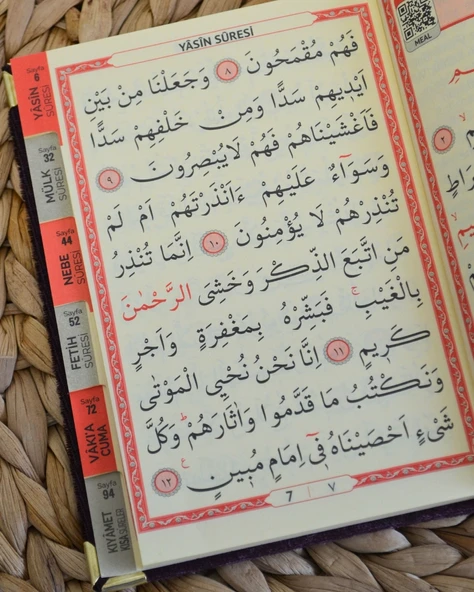 YÂSÎN SÛRESİ
فَهُمْ مُقْمَحُونَ ﴿٨﴾ وَجَعَلْنَا مِنْ بَيْنِ
اَيْدِيهِمْ سَدًّا وَمِنْ خَلْفِهِمْ سَدًّا
فَاَغْشَيْنَاهُمْ فَهُمْ لَايُبْصِرُونَ ﴿٩﴾
وَسَوَٓاءٌ عَلَيْهِمْ ءَاَنْذَرْتَهُمْ اَمْ لَمْ
تُنْذِرْهُمْ لَا يُؤْمِنُونَ ﴿١٠﴾ اِنَّمَا تُنْذِرُ
مَنِ اتَّبَعَ الذِّكْرَ وَخَشِيَ الرَّحْمٰنَ
بِالْغَيْبِۚ فَبَشِّرْهُ بِمَغْفِرَةٍ وَاَجْرٍ
كَرِيمٍ ﴿١١﴾ اِنَّا نَحْنُ نُحْيِ الْمَوْتٰى
وَنَكْتُبُ مَا قَدَّمُوا وَاٰثَارَهُمْۜ وَكُلَّ
شَيْءٍ اَحْصَيْنَاهُ فٓي اِمَامٍ مُبِينٍ ﴿١٢﴾
7 | ٧
Sayfa 6
YÂSÎN SÛRESİ
Sayfa 32
MÜLK SÛRESİ
Sayfa 44
NEBE SÛRESİ
Sayfa 52
FETİH SÛRESİ
Sayfa 72
VÂKIA CUMA
Sayfa 94
KIYÂMET KISA SÛRELER
MEAL
٢